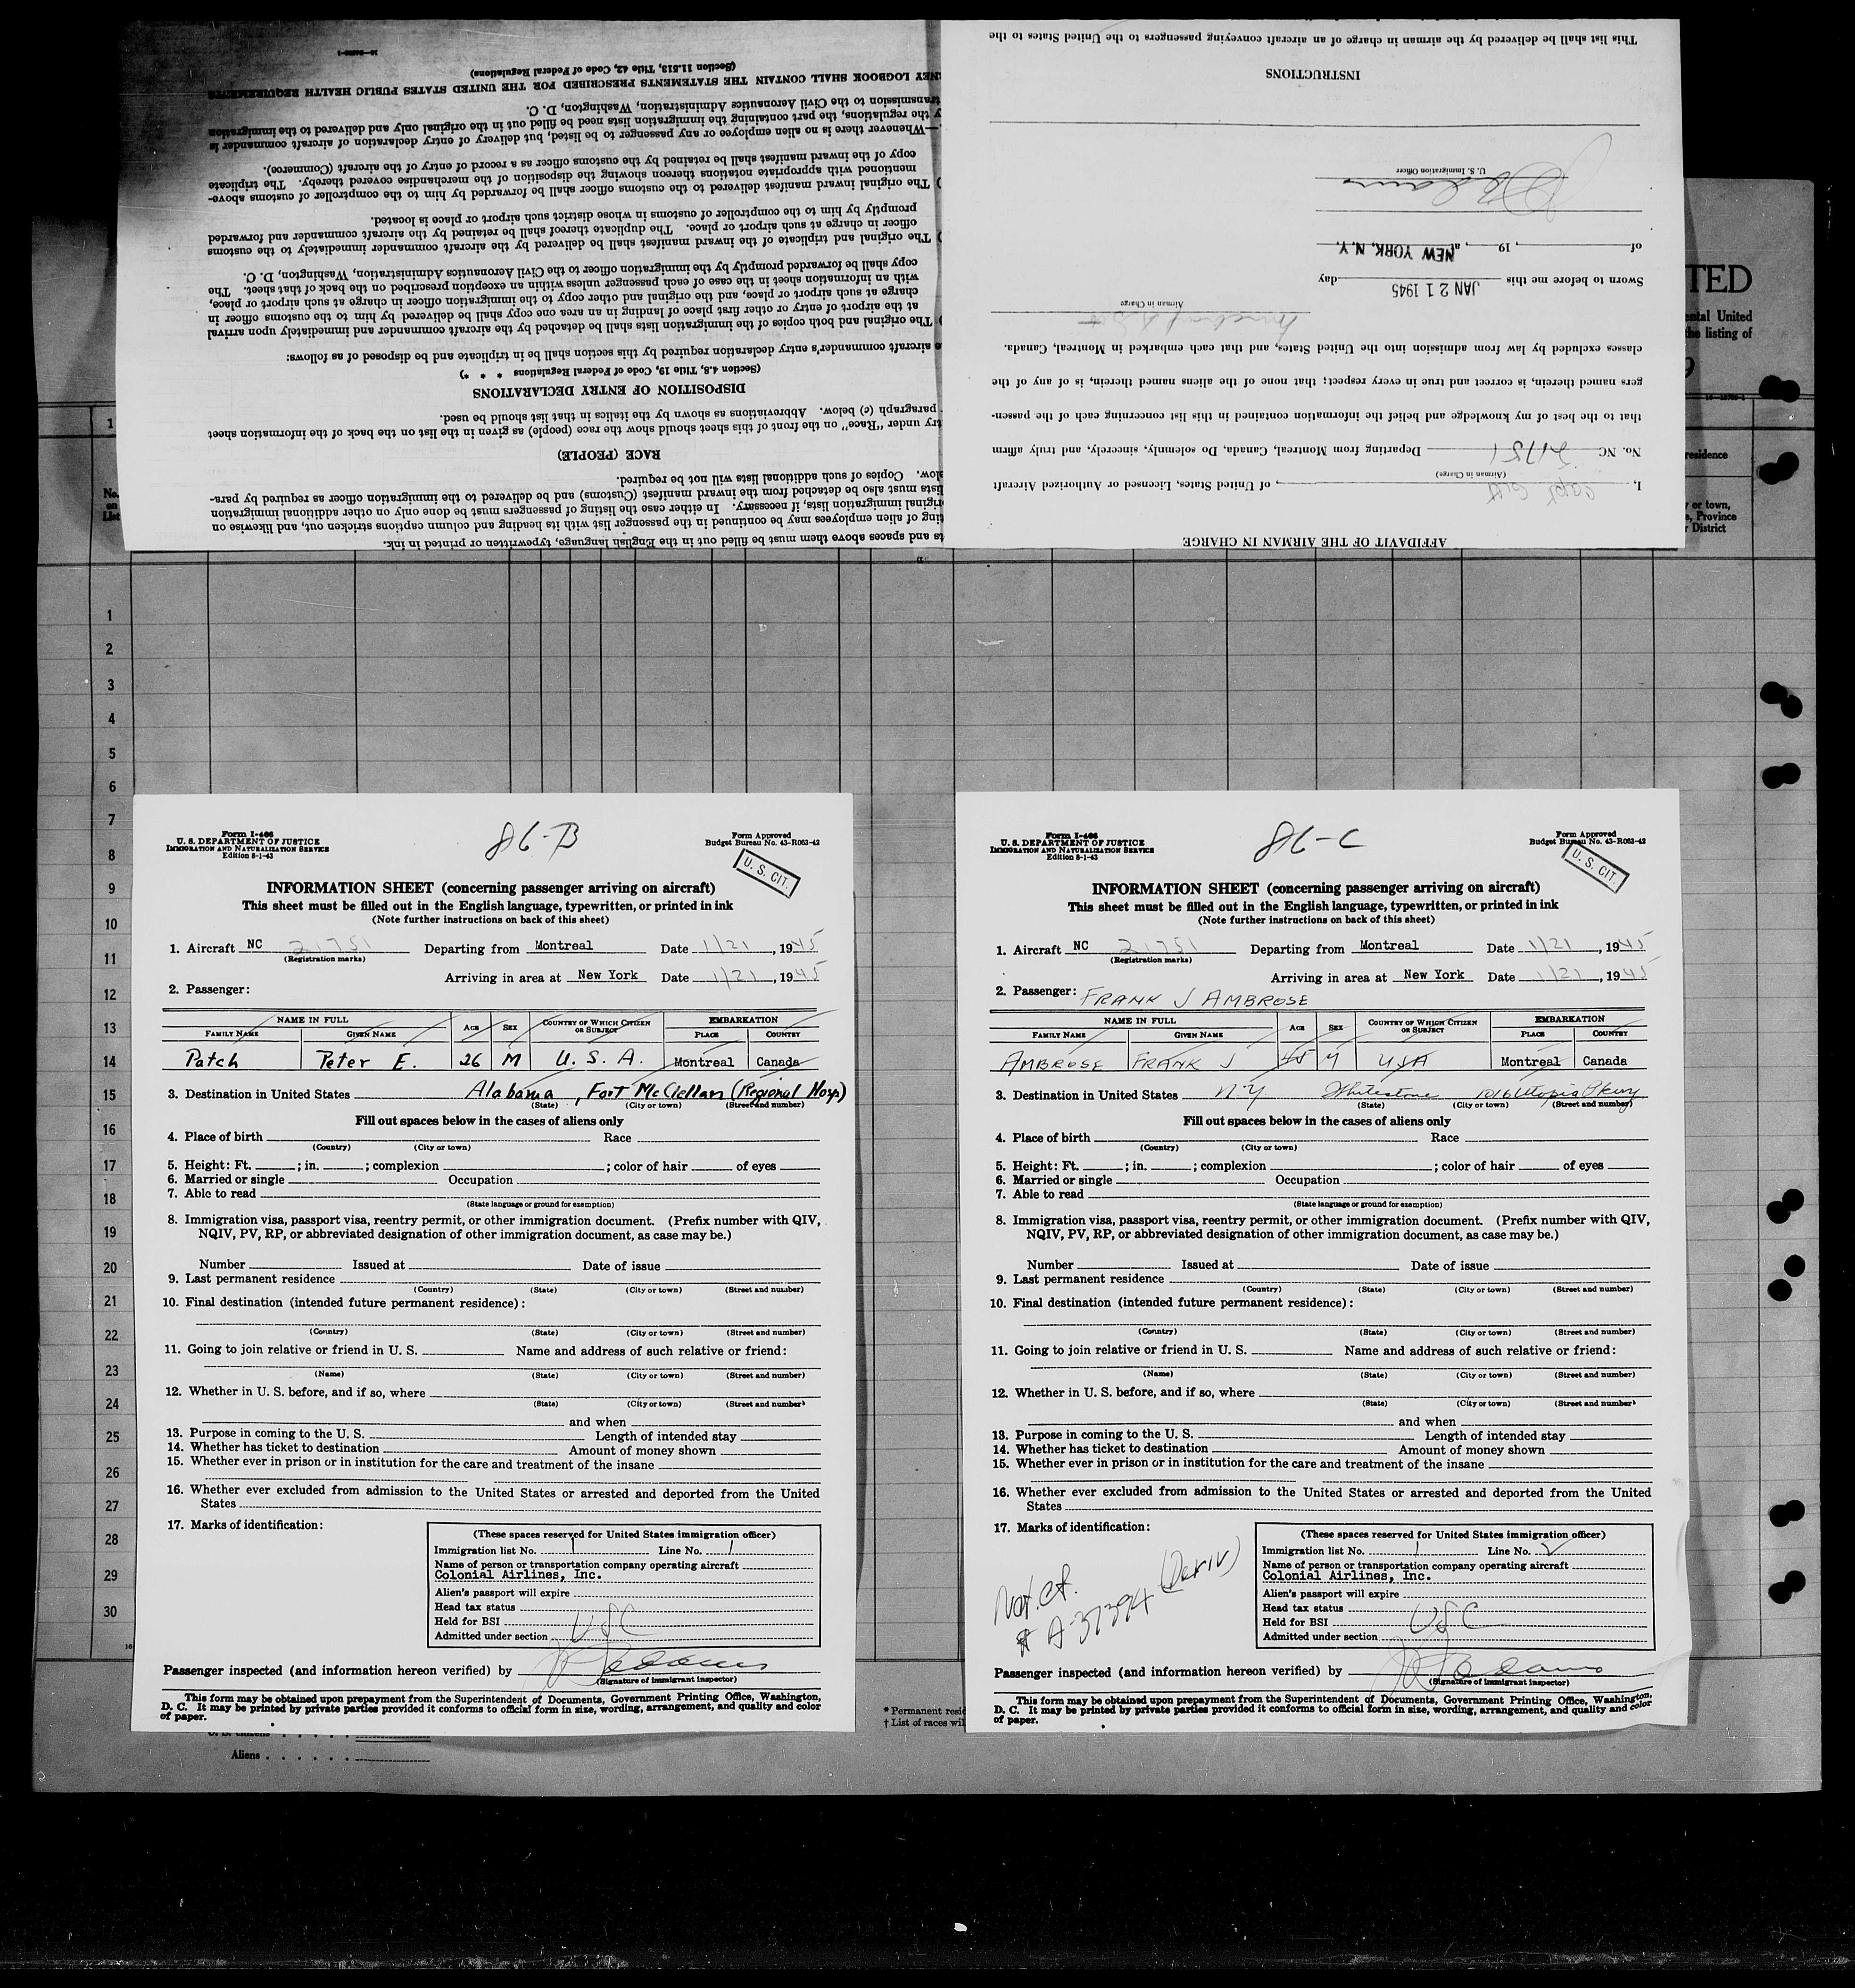 16—24802-1
(Section 11.513, Title 42, Code of Federal Regulations)
NEY LOGBOOK SHALL CONTAIN THE STATEMENTS PRESCRIBED FOR THE UNITED STATES PUBLIC HEALTH REQUIREMENTS
transmission to the Civil Aeronautics Administration, Washington, D. C.
y the regulations, the part containing the immigration lists need be filled out in the original only and delivered to the immigration
—Whenever there is no alien employee or any passenger to be listed, but delivery of entry declaration of aircraft commander is
copy of the inward manifest shall be retained by the customs officer as a record of entry of the aircraft (Commerce).
mentioned with appropriate notations thereon showing the disposition of the merchandise covered thereby. The triplicate
) The original inward manifest delivered to the customs officer shall be forwarded by him to the comptroller of customs above-
promptly by him to the comptroller of customs in whose district such airport or place is located.
officer in charge at such airport or place. The duplicate thereof shall be retained by the aircraft commander and forwarded
) The original and triplicate of the inward manifest shall be delivered by the aircraft commander immediately to the customs
copy shall be forwarded promptly by the immigration officer to the Civil Aeronautics Administration, Washington, D. C.
with an information sheet in the case of each passenger unless within an exception prescribed on the back of that sheet. The
charge at such airport or place, and the original and other copy to the immigration officer in charge at such airport or place,
at the airport of entry or other first place of landing in an area one copy shall be delivered by him to the customs officer in
) The original and both copies of the immigration lists shall be detached by the aircraft commander and immediately upon arrival
e aircraft commander's entry declaration required by this section shall be in triplicate and be disposed of as follows:
(Section 4.8, Title 19, Code of Federal Regulations * * *)
DISPOSITION OF ENTRY DECLARATIONS
paragraph (c) below. Abbreviations as shown by the italics in that list should be used.
try under "Race" on the front of this sheet should show the race (people) as given in the list on the back of the information sheet
RACE (PEOPLE)
low. Copies of such additional lists will not be required.
lists must also be detached from the inward manifest (Customs) and be delivered to the immigration officer as required by para-
riginal immigration lists, if necessary. In either case the listing of passengers must be done only on other additional immigration
ting of alien employees may be continued in the passenger list with its heading and column captions stricken out, and likewise on
ts and spaces above them must be filled out in the English language, typewritten or printed in ink.
This list shall be delivered by the airman in charge of an aircraft conveying passengers to the United States to the
INSTRUCTIONS
U. S. Immigration Officer
of , 19 , at NEW YORK, N. Y.
Sworn to before me this JAN 21 1945 day
Airman in Charge
classes excluded by law from admission into the United States, and that each embarked in Montreal, Canada.
gers named therein, is correct and true in every respect; that none of the aliens named therein, is of any of the
that to the best of my knowledge and belief the information contained in this list concerning each of the passen-
No. NC 21751 Departing from Montreal, Canada, Do solemnly, sincerely, and truly affirm
(Airman in Charge)
I, Capt , of United States, Licensed or Authorized Aircraft
AFFIDAVIT OF THE AIRMAN IN CHARGE
TED
ental United
the listing of
9
1
No.
on
List
residence
y or town,
e, Province
r District
1
2
3
4
5
6
7
8
9
10
11
12
13
14
15
16
17
18
19
20
21
22
23
24
25
26
27
28
29
30
86-B
Form I-466
U. S. DEPARTMENT OF JUSTICE
IMMIGRATION AND NATURALIZATION SERVICE
Edition 8-1-43
Form Approved
Budget Bureau No. 43-R063-42
U. S. CIT.
INFORMATION SHEET (concerning passenger arriving on aircraft)
This sheet must be filled out in the English language, typewritten, or printed in ink
(Note further instructions on back of this sheet)
1. Aircraft NC 21751 Departing from Montreal Date 1/21, 1945
(Registration marks)
Arriving in area at New York Date 1/21, 1945
2. Passenger:
NAME IN FULL AGE SEX COUNTRY OF WHICH CITIZEN OR SUBJECT EMBARKATION
FAMILY NAME GIVEN NAME PLACE COUNTRY
Patch Peter E. 26 M U. S. A. Montreal Canada
3. Destination in United States Alabama, Fort McClellan (Regional Hosp)
(State) (City or town) (Street and number)
Fill out spaces below in the cases of aliens only
4. Place of birth Race
(Country) (City or town)
5. Height: Ft. ; in. ; complexion ; color of hair of eyes
6. Married or single Occupation
7. Able to read
(State language or ground for exemption)
8. Immigration visa, passport visa, reentry permit, or other immigration document. (Prefix number with QIV,
NQIV, PV, RP, or abbreviated designation of other immigration document, as case may be.)
Number Issued at Date of issue
9. Last permanent residence
(Country) (State) (City or town) (Street and number)
10. Final destination (intended future permanent residence):
(Country) (State) (City or town) (Street and number)
11. Going to join relative or friend in U. S. Name and address of such relative or friend:
(Name) (State) (City or town) (Street and number)
12. Whether in U. S. before, and if so, where
(State) (City or town) (Street and number)
and when
13. Purpose in coming to the U. S. Length of intended stay
14. Whether has ticket to destination Amount of money shown
15. Whether ever in prison or in institution for the care and treatment of the insane
16. Whether ever excluded from admission to the United States or arrested and deported from the United
States
17. Marks of identification:
(These spaces reserved for United States immigration officer)
Immigration list No. 1 Line No. 1
Name of person or transportation company operating aircraft
Colonial Airlines, Inc.
Alien's passport will expire
Head tax status
Held for BSI USC
Admitted under section
Passenger inspected (and information hereon verified) by
(Signature of immigrant inspector)
This form may be obtained upon prepayment from the Superintendent of Documents, Government Printing Office, Washington,
D. C. It may be printed by private parties provided it conforms to official form in size, wording, arrangement, and quality and color
of paper.
86-C
Form I-466
U. S. DEPARTMENT OF JUSTICE
IMMIGRATION AND NATURALIZATION SERVICE
Edition 8-1-43
Form Approved
Budget Bureau No. 43-R063-42
U. S. CIT.
INFORMATION SHEET (concerning passenger arriving on aircraft)
This sheet must be filled out in the English language, typewritten, or printed in ink
(Note further instructions on back of this sheet)
1. Aircraft NC 21751 Departing from Montreal Date 1/21, 1945
(Registration marks)
Arriving in area at New York Date 1/21, 1945
2. Passenger: FRANK J AMBROSE
NAME IN FULL AGE SEX COUNTRY OF WHICH CITIZEN OR SUBJECT EMBARKATION
FAMILY NAME GIVEN NAME PLACE COUNTRY
AMBROSE FRANK J 45 M USA Montreal Canada
3. Destination in United States N.Y Whitestone 1016 Utopia Pkwy
(State) (City or town) (Street and number)
Fill out spaces below in the cases of aliens only
4. Place of birth Race
(Country) (City or town)
5. Height: Ft. ; in. ; complexion ; color of hair of eyes
6. Married or single Occupation
7. Able to read
(State language or ground for exemption)
8. Immigration visa, passport visa, reentry permit, or other immigration document. (Prefix number with QIV,
NQIV, PV, RP, or abbreviated designation of other immigration document, as case may be.)
Number Issued at Date of issue
9. Last permanent residence
(Country) (State) (City or town) (Street and number)
10. Final destination (intended future permanent residence):
(Country) (State) (City or town) (Street and number)
11. Going to join relative or friend in U. S. Name and address of such relative or friend:
(Name) (State) (City or town) (Street and number)
12. Whether in U. S. before, and if so, where
(State) (City or town) (Street and number)
and when
13. Purpose in coming to the U. S. Length of intended stay
14. Whether has ticket to destination Amount of money shown
15. Whether ever in prison or in institution for the care and treatment of the insane
16. Whether ever excluded from admission to the United States or arrested and deported from the United
States
17. Marks of identification:
Nat. Ct.
# A-37394 (Deriv)
(These spaces reserved for United States immigration officer)
Immigration list No. 1 Line No. 2
Name of person or transportation company operating aircraft
Colonial Airlines, Inc.
Alien's passport will expire
Head tax status
Held for BSI USC
Admitted under section
Passenger inspected (and information hereon verified) by
(Signature of immigrant inspector)
This form may be obtained upon prepayment from the Superintendent of Documents, Government Printing Office, Washington,
D. C. It may be printed by private parties provided it conforms to official form in size, wording, arrangement, and quality and color
of paper.
* Permanent resid
† List of races wil
Aliens . . . . . .